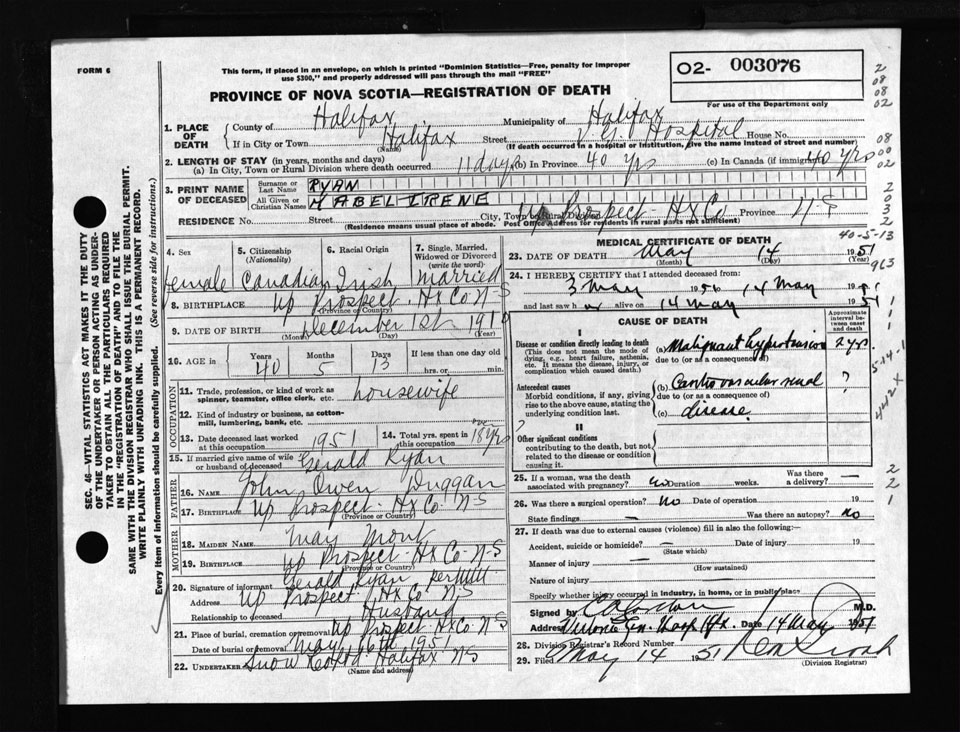 FORM 6
This form, if placed in an envelope, on which is printed "Dominion Statistics—Free, penalty for improper
use $300," and properly addressed will pass through the mail "FREE"
O2- 003076
For use of the Department only
PROVINCE OF NOVA SCOTIA—REGISTRATION OF DEATH
1. PLACE OF DEATH County of Halifax Municipality of Halifax
If in City or Town Halifax (Name) Street V. G. Hospital House No.
(If death occurred in a hospital or institution, give the name instead of street and number)
2. LENGTH OF STAY (in years, months and days)
(a) In City, Town or Rural Division where death occurred 11 days (b) In Province 40 yrs (c) In Canada (if immigrant) 40 yrs
3. PRINT NAME OF DECEASED Surname or Last Name RYAN
All Given or Christian Names MABEL IRENE
RESIDENCE No. Street City, Town or Rural Division Up Prospect Hx Co Province N S
(Residence means usual place of abode. Post Office Address for residents in rural parts not sufficient)
4. Sex Female
5. Citizenship (Nationality) Canadian
6. Racial Origin Irish
7. Single, Married, Widowed or Divorced (write the word) Married
8. BIRTHPLACE Up Prospect Hx Co N S
(Province or Country)
9. DATE OF BIRTH December 1st 1910
(Month) (Day) (Year)
10. AGE in Years 40 Months 5 Days 3 If less than one day old hrs. or min.
OCCUPATION
11. Trade, profession, or kind of work as spinner, teamster, office clerk, etc. housewife
12. Kind of industry or business, as cotton-mill, lumbering, bank, etc.
13. Date deceased last worked at this occupation 1951 14. Total yrs. spent in this occupation 18 yrs
15. If married give name of wife or husband of deceased Gerald Ryan
FATHER
16. Name John Owen Duggan
17. Birthplace Up Prospect Hx Co N S
(Province or Country)
MOTHER
18. Maiden Name May Mont
19. Birthplace Up Prospect Hx Co N-S
(Province or Country)
20. Signature of informant Gerald Ryan per
Address Up Prospect Hx Co N S
Relationship to deceased Husband
21. Place of burial, cremation or removal Up Prospect Hx Co N S
Date of burial or removal May 16th 1951
22. Undertaker Snow & Co Ltd Halifax NS
(Name and address)
MEDICAL CERTIFICATE OF DEATH
23. DATE OF DEATH May 14 1951
(Month) (Day) (Year)
24. I HEREBY CERTIFY that I attended deceased from:
3 May 1951 to 14 May 1951
and last saw h alive on 14 May 1951
CAUSE OF DEATH
Approximate interval between onset and death
I
Disease or condition directly leading to death (a) Malignant hypertension 2 yrs.
(This does not mean the mode of dying, e.g., heart failure, asthenia, etc. It means the disease, injury, or complication which caused death.)
due to (or as a consequence of)
Antecedent causes (b) Cardio vascular renal ?
Morbid conditions, if any, giving rise to the above cause, stating the underlying condition last.
due to (or as a consequence of)
(c) disease
II
Other significant conditions
contributing to the death, but not related to the disease or condition causing it.
25. If a woman, was the death associated with pregnancy? no Duration weeks. Was there a delivery? —
26. Was there a surgical operation? No Date of operation 19
State findings — Was there an autopsy? no
27. If death was due to external causes (violence) fill in also the following:—
Accident, suicide or homicide? — Date of injury 19
(State which)
Manner of injury —
(How sustained)
Nature of injury —
Specify whether injury occurred in industry, in home, or in public place
Signed by M.D.
Address Victoria Gen. Hosp Hfx. Date 14 May 1951
28. Division Registrar's Record Number
29. Filed May 14 1951
(Division Registrar)
SEC. 46—VITAL STATISTICS ACT MAKES IT THE DUTY
OF THE UNDERTAKER OR PERSON ACTING AS UNDER-
TAKER TO OBTAIN ALL THE PARTICULARS REQUIRED
IN THE "REGISTRATION OF DEATH" AND TO FILE THE
SAME WITH THE DIVISION REGISTRAR WHO SHALL ISSUE THE BURIAL PERMIT.
WRITE PLAINLY WITH UNFADING INK. THIS IS A PERMANENT RECORD.
Every item of information should be carefully supplied. (See reverse side for instructions.)
2
08
08
02
08
00
02
2
0
3
2
40-5-13
963
1
1
1
5-14-1
442X
2
2
1